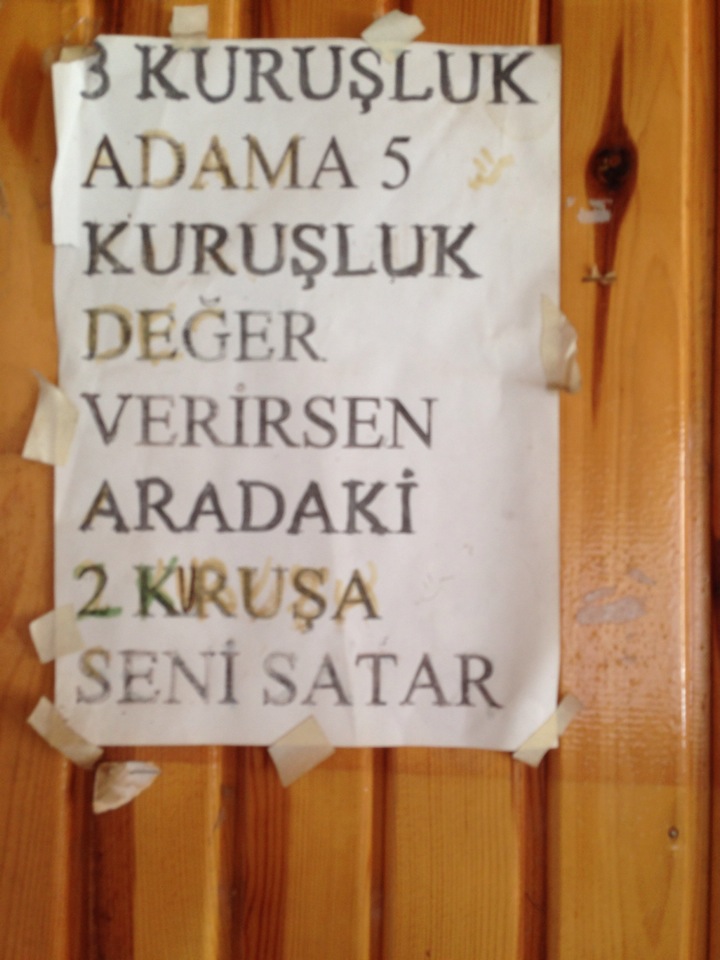 3 KURUŞLUK
ADAMA 5
KURUŞLUK
DEĞER
VERİRSEN
ARADAKİ
2 KURUŞA
SENİ SATAR